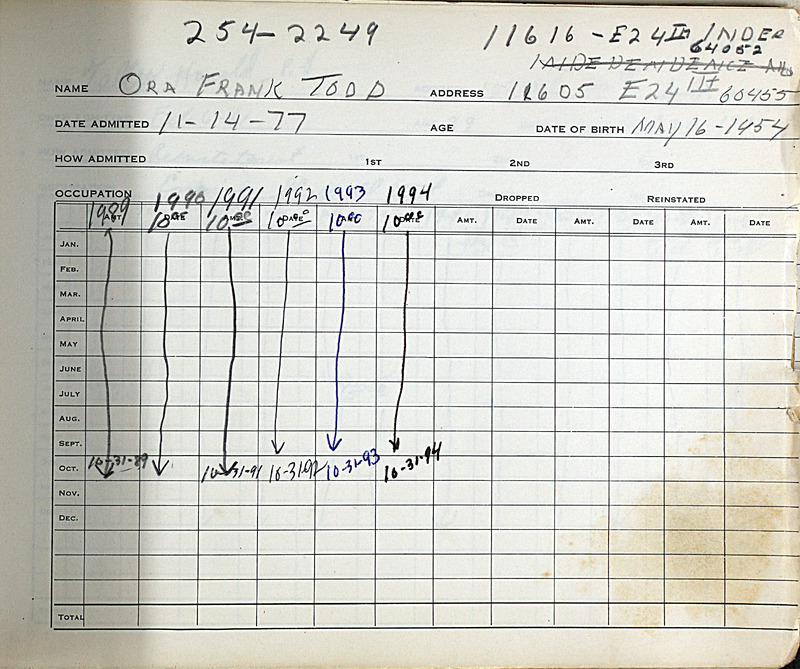 254-2249 11616 - E24TH INDEP
64052
INDEPENDENCE
NAME ORA FRANK TODD ADDRESS 11605 E24TH 60455
DATE ADMITTED 11-14-77 AGE DATE OF BIRTH MAY 16-1454
HOW ADMITTED 1ST 2ND 3RD
OCCUPATION 1990 1991 1992 1993 1994 DROPPED REINSTATED
1989 AMT. DATE AMT. DATE AMT. DATE AMT. DATE AMT. DATE AMT. DATE
10.00 10.00 10.00 10.00
JAN.
FEB.
MAR.
APRIL
MAY
JUNE
JULY
AUG.
SEPT.
OCT. 10-31-89 10-31-91 10-31-92 10-31-93 10-31-94
NOV.
DEC.
TOTAL